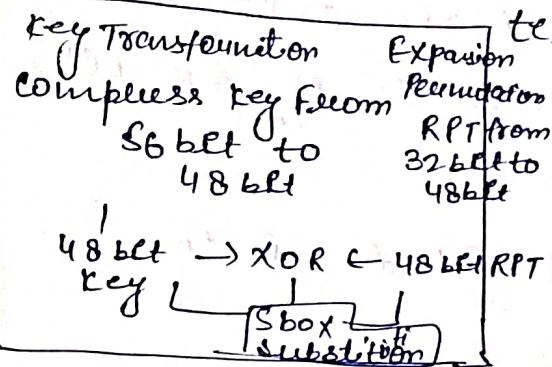 te
Key Transformation
compress key from
56 bit to
48 bit
Expasion
Permutation
RPT from
32 bit to
48 bit
48 bit → XOR ← 48 bit RPT
key
Sbox
substitution